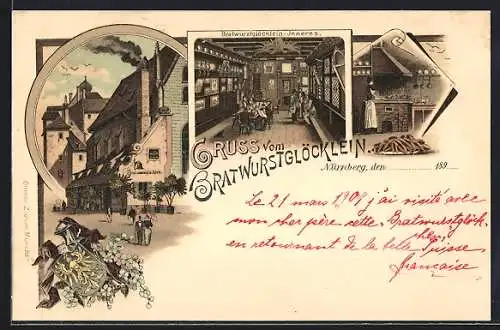 Bratwurstglöcklein-Inneres.
Gruss vom
Bratwurstglöcklein.
Nürnberg, den 189
Le 21 mars 1909 j'ai visité avec
mon cher père cette Bratwurstglöck-
en retournant de la belle Suisse
française